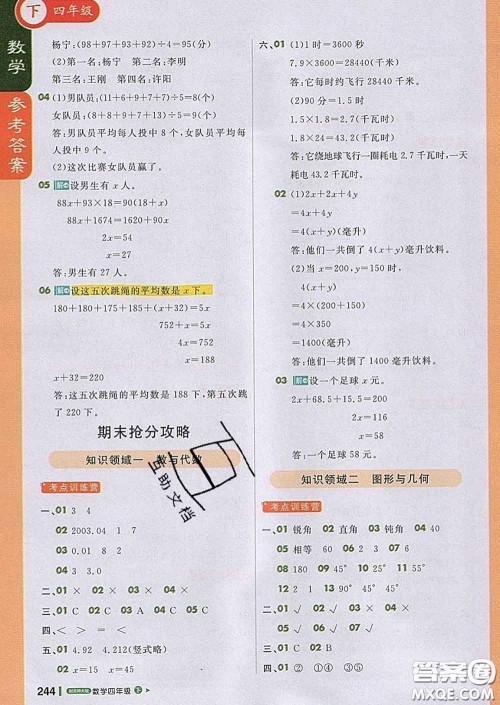 下 四年级
数学
参考答案
杨宁:(98+97+93+92)÷4=95(分)
(2)第一名:杨宁 第二名:李明
第三名:王刚 第四名:许阳
04 (1)男队员:(11+6+9+7+7)÷5=8(个)
女队员:(8+7+9+13+8)÷5=9(个)
答:男队员平均每人投中 8 个,女队员平均每人投中 9 个。
(2)这次比赛女队员赢了。
05 解 设男生有 x 人。
88x+93×18=90(18+x)
88x+1674=1620+90x
2x=54
x=27
答:男生有 27 人。
06 解 设这五次跳绳的平均数是 x 下。
180+180+175+185+(x+32)=5x
752+x=5x
4x=752
x=188
x+32=220
答:这五次跳绳的平均数是 188 下,第五次跳了 220 下。
期末抢分攻略
知识领域一 数与代数
考点训练营
一、01 3 4
02 2003.04 1 7
03 0.01 8 2
04 3 3.0
二、01 × 02 × 03 × 04 ×
三、01 C 02 C 03 A 04 C 05 C
四、< > = <
五、01 4.92 4.212(竖式略)
02 x=15 x=45
244 数学四年级 下
六、01 (1)1时=3600 秒
7.9×3600=28440(千米)
答:它每时约飞行 28440 千米。
(2)90 分=1.5 时
1.8×1.5=2.7(千瓦时)
1.8×24=43.2(千瓦时)
答:它绕地球飞行一圈耗电 2.7 千瓦时,一天耗电 43.2 千瓦时。
02 (1)2x+2x+4y
=4x+4y
=4(x+y)(毫升)
答:他们一共倒了 4(x+y)毫升饮料。
(2)当 x=200,y=150 时,
4(x+y)
=4×(200+150)
=4×350
=1400(毫升)
答:他们一共倒了 1400 毫升饮料。
03 解 设一个足球 x 元。
2x+68.5+15.5=200
2x=116
x=58
答:一个足球 58 元。
知识领域二 图形与几何
考点训练营
一、01 锐角 02 直角 03 钝角 04 锐角
05 相等 60
08 180 09 45° 10 25°
12 2 1 13 90° 45° 45°
二、01 √ 02 √ 03 × 04 √
三、01 √ 02 √ 03 √
05 √
四、01 ② ①④ ③⑤
互助文档
答案圈
MXQE.COM